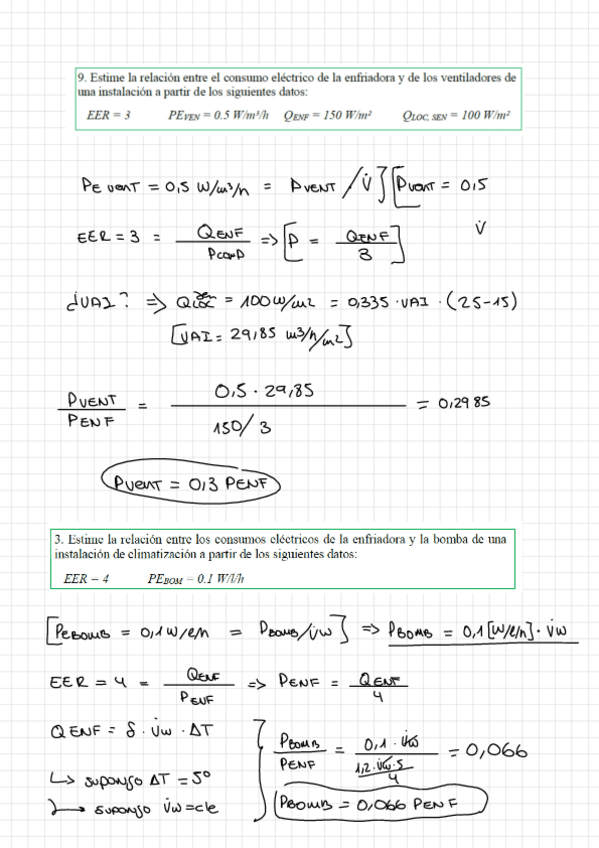 9. Estime la relación entre el consumo eléctrico de la enfriadora y de los ventiladores de
una instalación a partir de los siguientes datos:
EER = 3 PEVEN = 0.5 W/m³/h QENF = 150 W/m² QLOC, SEN = 100 W/m²
PE VENT = 0,5 W/m3/h = PVENT / V̇ ] [ PVENT = 0,5
V̇
EER = 3 = QENF / PCOMP => [ P = QENF / 3 ]
¿VAI? => QLOC SEN = 100 W/m2 = 0,335 · VAI · (25-15)
[VAI = 29,85 m3/h/m2]
PVENT / PENF = 0,5 · 29,85 / 150/3 = 0,2985
PVENT = 0,3 PENF
3. Estime la relación entre los consumos eléctricos de la enfriadora y la bomba de una
instalación de climatización a partir de los siguientes datos:
EER = 4 PEBOM = 0.1 W/l/h
[PEBOMB = 0,1 W/l/h = PBOMB/V̇w] => PBOMB = 0,1 [W/l/h] · V̇w
EER = 4 = QENF / PENF => PENF = QENF / 4
QENF = δ · V̇w · ΔT
↳ supongo ΔT = 5º
↳ supongo V̇w = cte
PBOMB / PENF = 0,1 · V̇w / 1,2 · V̇w · 5 / 4 = 0,066
PBOMB = 0,066 PENF